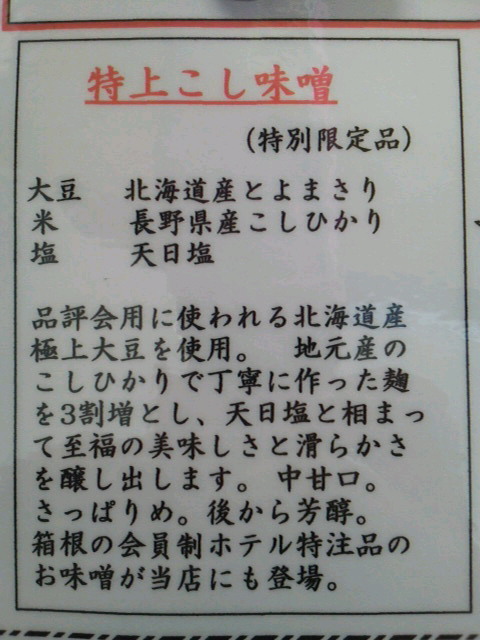 特上こし味噌
（特別限定品）
大豆　北海道産とよまさり
米　長野県産こしひかり
塩　天日塩
品評会用に使われる北海道産
極上大豆を使用。　地元産の
こしひかりで丁寧に作った麹
を3割増とし、天日塩と相まっ
て至福の美味しさと滑らかさ
を醸し出します。 中甘口。
さっぱりめ。後から芳醇。
箱根の会員制ホテル特注品の
お味噌が当店にも登場。